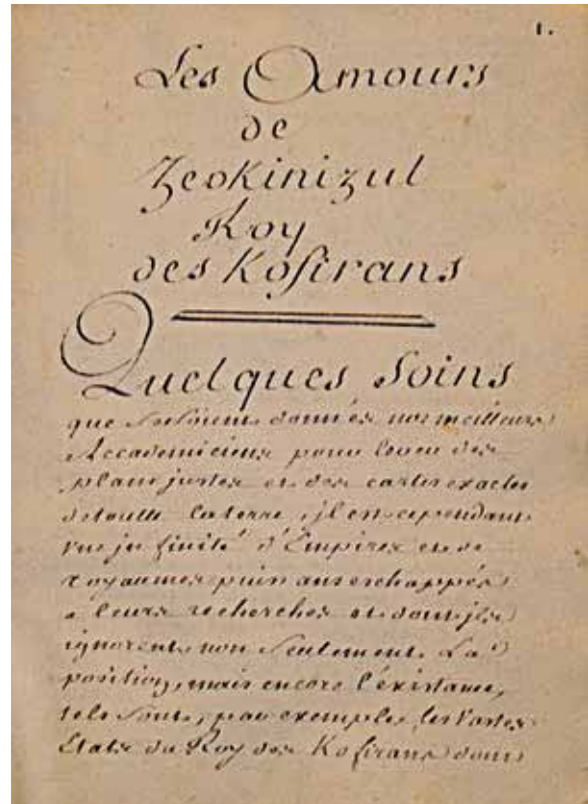 1.
Les Amours
de
Zeokinizul
Roy
des Kofirans
Quelques Soins
que se soient donnés nos meilleurs
Accademiciens pour lever des
plans justes et des cartes exactes
de toutte la terre, il en cependant
une jnfinité d'Empires et de
royaumes puissans echappés
a leurs recherches et dont jls
ignorent non Seulement La
position, mais encore l'existance,
tels sont, par exemple, les Vastes
Etats du Roy des Kofirans dont